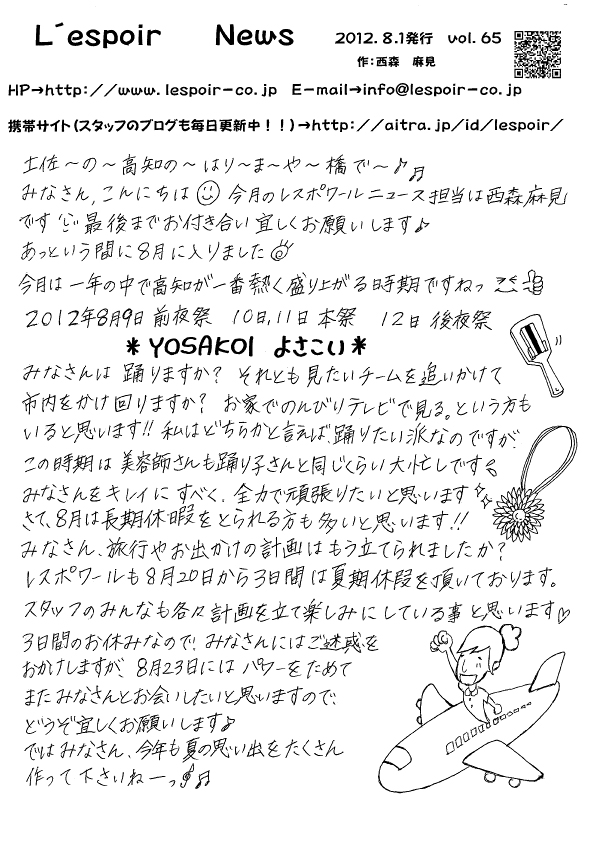 L´espoir News 2012.8.1発行 vol.65
作:西森 麻見
HP→http://www.lespoir-co.jp E-mail→info@lespoir-co.jp
携帯サイト(スタッフのブログも毎日更新中!!)→http://aitra.jp/id/lespoir/
土佐〜の〜高知の〜はり〜ま〜や〜橋で〜♪♬
みなさん,こんにちは☺ 今月のレスポワールニュース担当は西森麻見
です 最後までお付き合い宜しくお願いします♪
あっという間に8月に入りました
今月は一年の中で高知が一番熱く盛り上がる時期ですねっ
2012年8月9日 前夜祭 10日,11日 本祭 12日 後夜祭
*YOSAKOI よさこい*
みなさんは 踊りますか? それとも見たいチームを追いかけて
市内をかけ回りますか? お家でのんびりテレビで見る。という方も
いると思います!! 私はどちらかと言えば、踊りたい派なのですが、
この時期は美容師さんも踊り子さんと同じくらい大忙しです
みなさんをキレイにすべく、全力で頑張りたいと思います
さて、8月は長期休暇をとられる方も多いと思います!!
みなさん、旅行やお出かけの計画はもう立てられましたか?
レスポワールも8月20日から3日間は夏期休暇を頂いております。
スタッフのみんなも各々計画を立て楽しみにしている事と思います♡
3日間のお休みなので、みなさんにはご迷惑を
おかけしますが、8月23日にはパワーをためて
またみなさんとお会いしたいと思いますので、
どうぞ宜しくお願いします♪
ではみなさん、今年も夏の思い出をたくさん
作って下さいねーっ♬